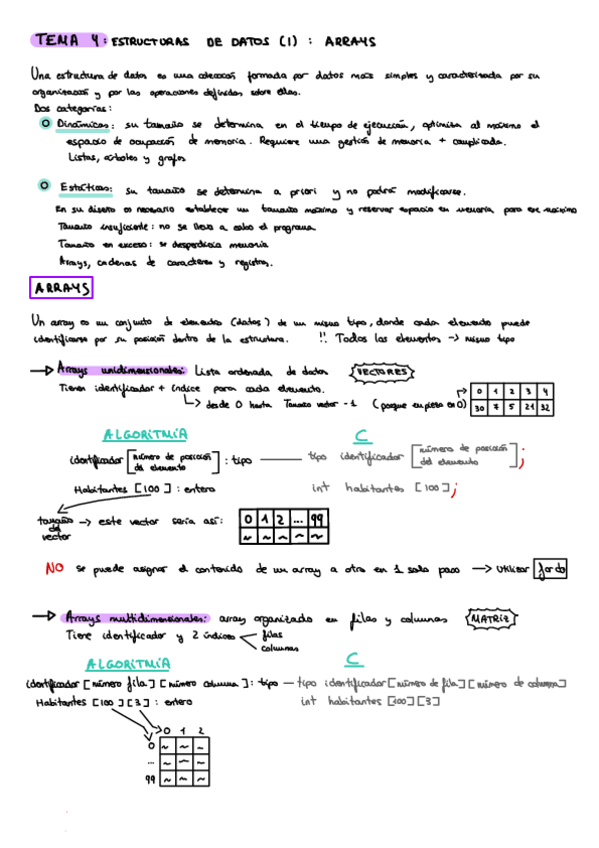 TEMA 4: ESTRUCTURAS DE DATOS (I) : ARRAYS
Una estructura de datos es una colección formada por datos más simples y caracterizada por su
organización y por las operaciones definidas sobre ellas.
Dos categorías:
Dinámicas: su tamaño se determina en el tiempo de ejecución, optimiza al máximo el
espacio de ocupación de memoria. Requiere una gestión de memoria + complicada.
Listas, árboles y grafos
Estáticas: su tamaño se determina a priori y no podrá modificarse.
En su diseño es necesario establecer un tamaño máximo y reservar espacio en memoria para ese máximo
Tamaño insuficiente: no se lleva a cabo el programa
Tamaño en exceso: se desperdicia memoria
Arrays, cadenas de caracteres y registros.
ARRAYS
Un array es un conjunto de elementos (datos) de un mismo tipo, donde cada elemento puede
identificarse por su posición dentro de la estructura. !! Todos los elementos -> mismo tipo
→ Arrays unidimensionales: Lista ordenada de datos VECTORES
Tienen identificador + índice para cada elemento.
↳ desde 0 hasta Tamaño vector - 1 (porque empieza en 0)
0 1 2 3 4
30 7 5 21 32
ALGORITMIA C
identificador [número de posición del elemento] : tipo — tipo identificador [número de posición del elemento];
Habitantes [100] : entero int habitantes [100];
tamaño del vector → este vector sería así:
0 1 2 ... 99
~ ~ ~ ~ ~
NO se puede asignar el contenido de un array a otro en 1 solo paso → utilizar for do
→ Arrays multidimensionales: array organizado en filas y columnas MATRIZ
Tiene identificador y 2 índices filas
columnas
ALGORITMIA C
identificador [número fila] [número columna]: tipo — tipo identificador [número de fila] [número de columna]
Habitantes [100] [3] : entero int habitantes [100] [3]
0 1 2
0 ~ ~ ~
... ~ ~ ~
99 ~ ~ ~